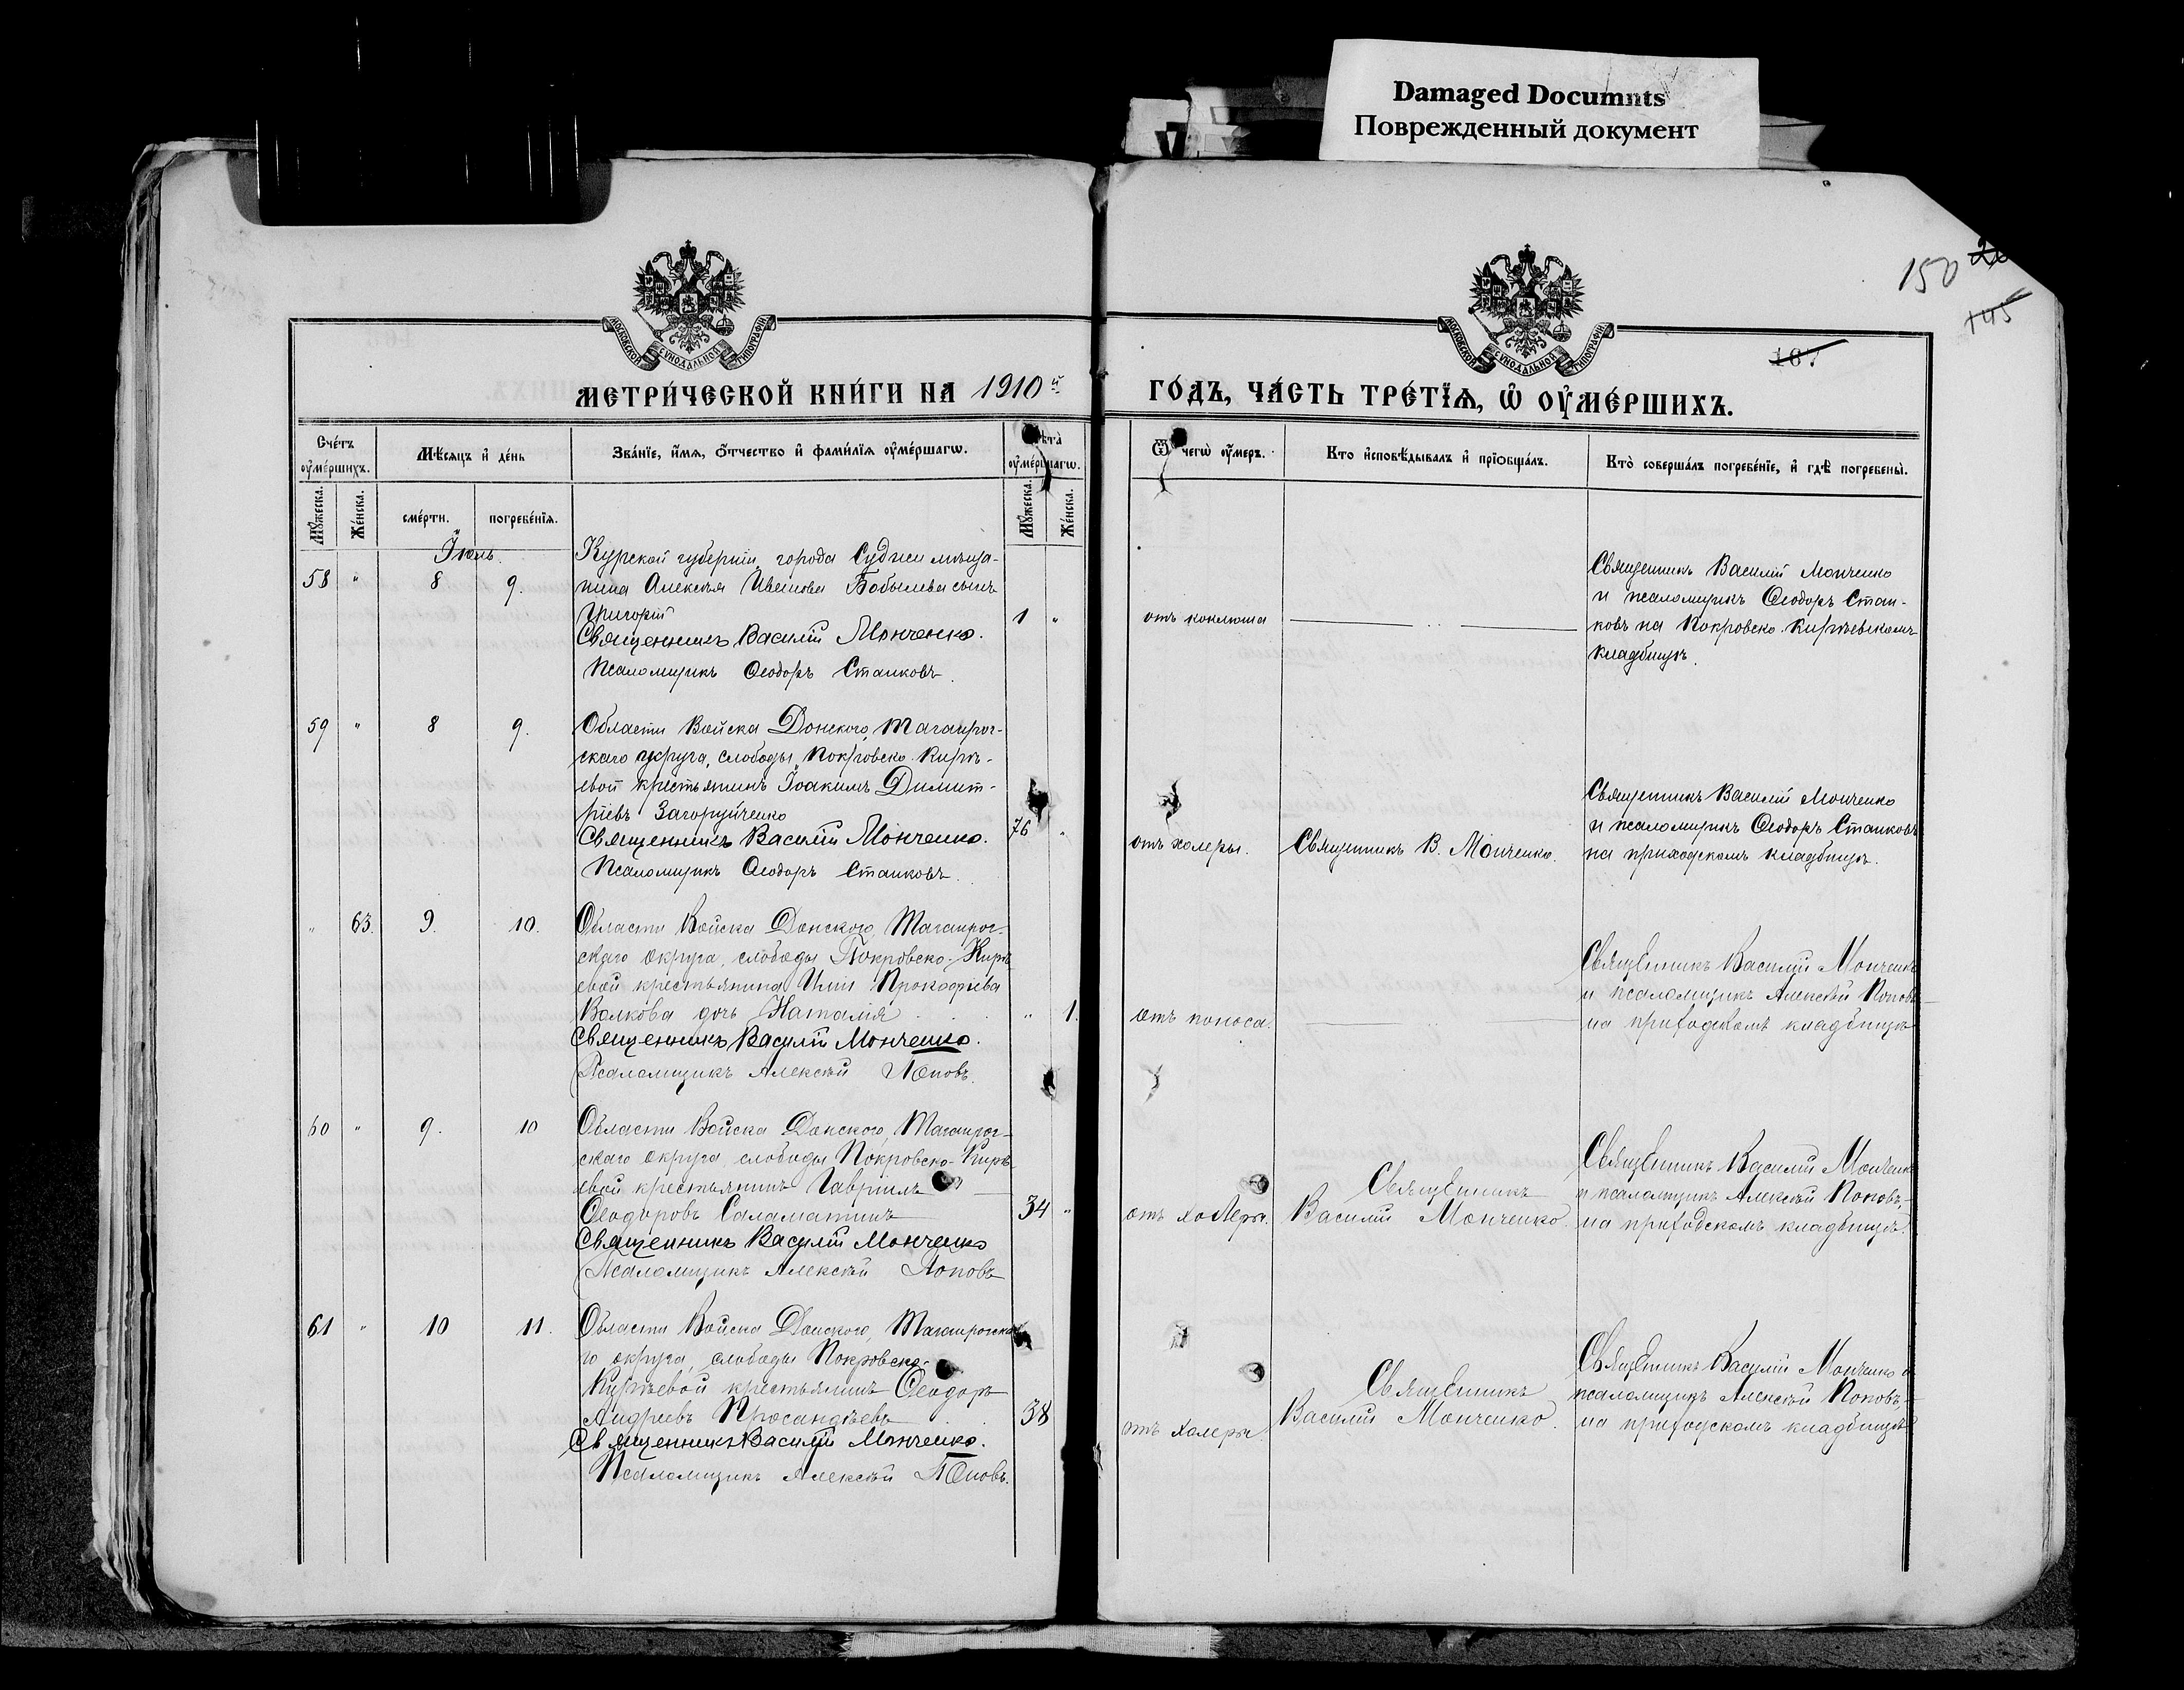 Damaged Documnts
Поврежденный документ
150
145
167
МОСКОВСКОЙ СѴНОДАЛЬНОЙ ТИПОГРАФІИ
МОСКОВСКОЙ СѴНОДАЛЬНОЙ ТИПОГРАФІИ
МЕТРИ́ЧЕСКОЙ КНИ́ГИ НА 1910й
ГО́ДЪ, ЧА́СТЬ ТРЕ́ТЇѦ, Ѡ҆ ОУ҆МЕ́РШИХЪ.
Сче́тъ оу҆ме́ршихъ.
Мѣ́сѧцъ и҆ де́нь
Зва́нїе, и҆́мѧ, ѻ҆́тчество и҆ фами́лїѧ оу҆ме́ршагѡ.
Лѣта̀ оу҆ме́ршагѡ.
Ѿ чегѡ̀ оу҆́меръ.
Кто̀ и҆сповѣ́дывалъ и҆ прїѻбща́лъ.
Кто̀ соверша́лъ погребе́нїе, и҆ гдѣ̀ погребены̀.
Мꙋ́жеска.
Же́нска.
сме́рти.
погребе́нїѧ.
Мꙋ́жеска.
Же́нска.
Іюль.
58 " 8 9.
Курской губерніи, города Суджи мѣща-
нина Алексѣя Иванова Бобылева сынъ
Григорій
1 "
Священникъ Василій Монченко.
Псаломщикъ Ѳеодоръ Станковъ.
отъ коклюша
Священникъ Василій Монченко
и псаломщикъ Ѳеодоръ Стан-
ковъ на Покровско-Кирѣевскомъ
кладбищѣ.
59 " 8 9.
Области Войска Донского, Таганрог-
скаго округа, слободы Покровско-Кирѣ-
евой крестьянинъ Іоакимъ Димит-
ріевъ Загоруйченко
76 "
Священникъ Василій Монченко.
Псаломщикъ Ѳеодоръ Станковъ.
отъ холеры.
Священникъ В. Монченко.
Священникъ Василій Монченко
и псаломщикъ Ѳеодоръ Станковъ
на приходскомъ кладбищѣ.
" 63. 9. 10.
Области Войска Донского, Таганрог-
скаго округа, слободы Покровско-Кирѣ-
евой крестьянина Иліи Прокофіева
Волкова дочь Наталія
" 1.
Священникъ Василій Монченко.
Псаломщикъ Алексѣй Поповъ.
отъ поноса.
Священникъ Василій Монченко
и псаломщикъ Алексѣй Поповъ
на приходскомъ кладбищѣ
60 " 9. 10
Области Войска Донского, Таганрог-
скаго округа, слободы Покровско-Кирѣ-
евой крестьянинъ Гавріилъ
Ѳеодоровъ Саламатинъ
34 "
Священникъ Василій Монченко
Псаломщикъ Алексѣй Поповъ
отъ холеры.
Священникъ
Василій Монченко.
Священникъ Василій Монченко
и псаломщикъ Алексѣй Поповъ,
на приходскомъ кладбищѣ.
61 " 10 11.
Области Войска Донского, Таганрогска-
го округа, слободы Покровско-
Кирѣевой крестьянинъ Ѳеодоръ
Андреевъ
38
Священникъ Василій Монченко.
Псаломщикъ Алексѣй Поповъ.
отъ холеры.
Священникъ
Василій Монченко.
Священникъ Василій Монченко и
псаломщикъ Алексѣй Поповъ,
на приходскомъ кладбищѣ